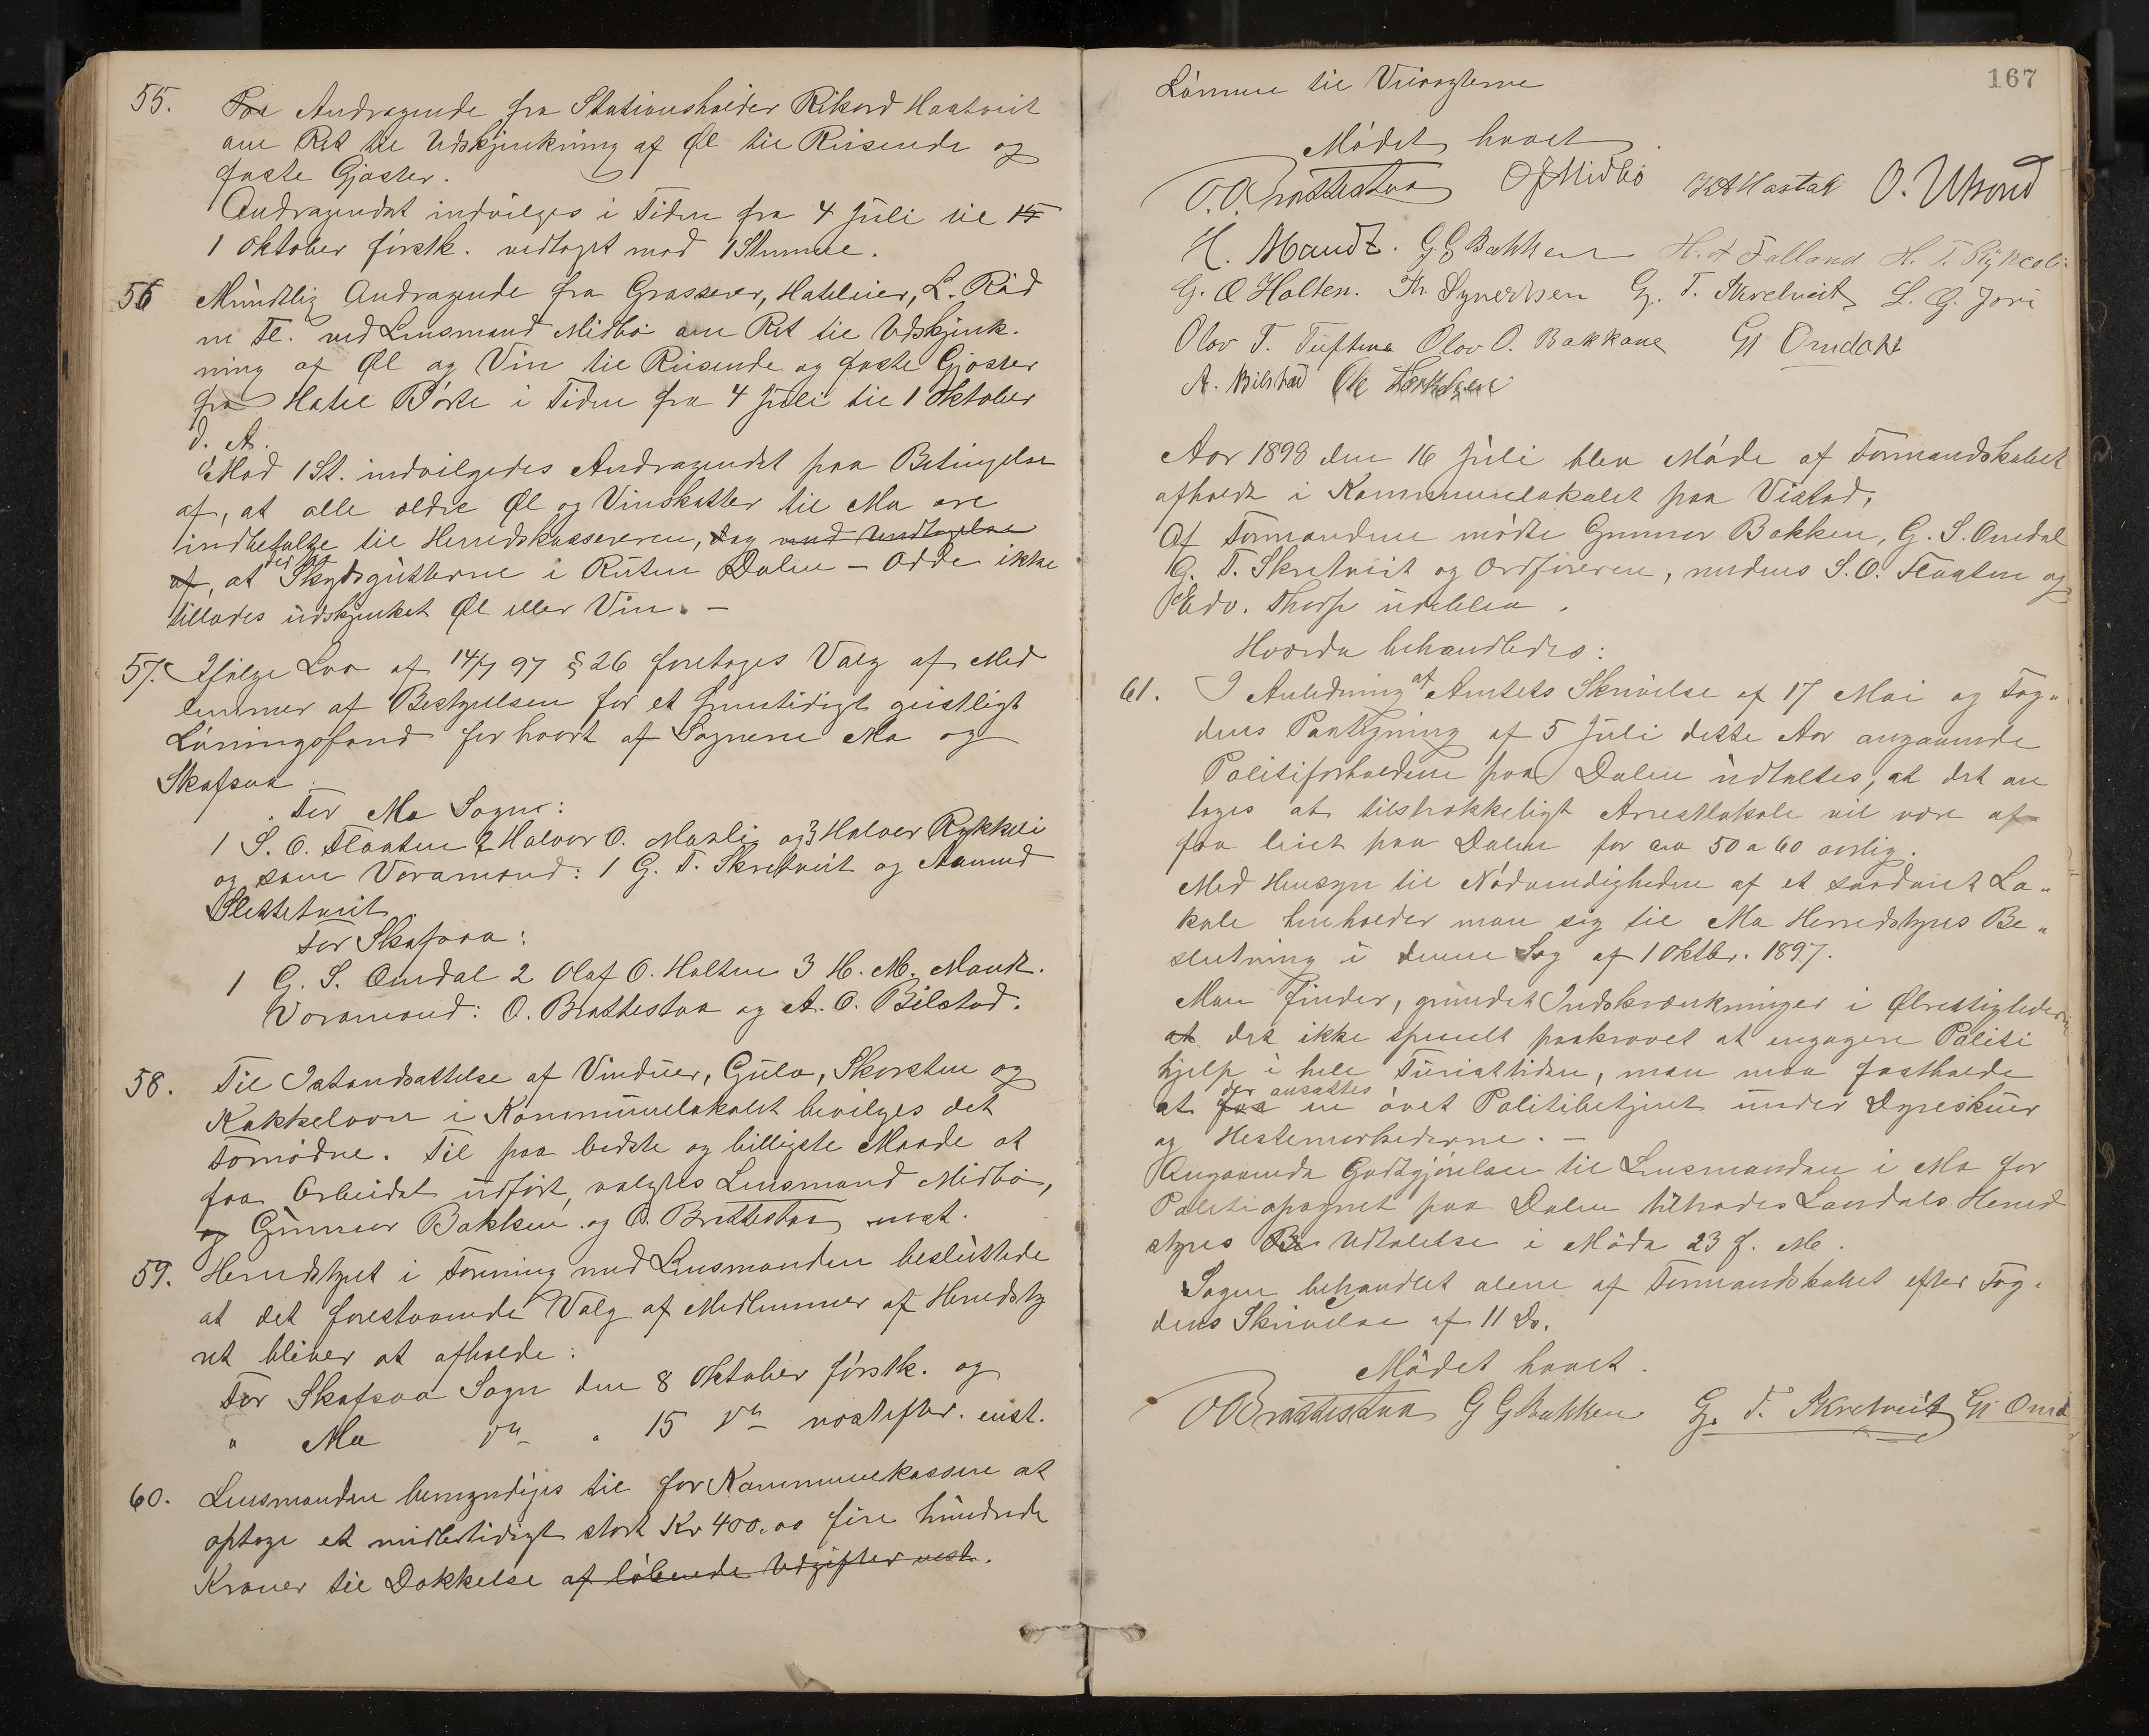 55. Paa Andragende fra Stationsholder Rikard Haatveit
om Ret til Udskjenkning af Øl til Reisende og
faste Gjæster.
Andragendet indvilges i Tiden fra 4 Juli til 15
1 Oktober førstk. vedtaget mod 1 Stemme.
56 Mundtlig Andragende fra Grosserer, Hoteleier, L. Råd
m Fl. ved Lensmand Midbø om Ret til Udskjenk-
ning af Øl og Vin til Reisende og faste Gjæster
fra Hotel Børte i Tiden fra 4 Juli til 1 Oktober
d. A.
Mod 1 St. indvilgedes Andragendet paa Betingelse
af, at alle ældre Øl og Vinskatter til Mo ere
indbetalte til Herredskassereren, dog med Undtagelse
af, at det Skydsgutterne i Ruten Dalen – Odde ikke
tillades udskjenket Øl eller Vin. –
57. Ifølge Lov af 14/7 97 § 26 foretages Valg af Med
lemmer af Bestyrelsen for et fremtidigt geistligt
Lønningsfond for hvert af Sognene Mo og
Skafsaa.
For Mo Sogn:
1 S. O. Flaaten 2 Halvor O. Mosli og 3 Halvor Rykkeli
og som Varamænd: 1 G. T. Skretveit og Aamund
Slettetveit.
For Skafsaa:
1 G. S. Omdal 2 Olaf O. Holten 3 H. M. Mandt.
Varamænd: O. Brattestaa og A. O. Bilstad.
58. Til Istandsættelse af Vinduer, Gulv, Skorsten og
Kakkelovn i Kommunelokalet bevilges det
Fornødne. Til paa bedste og billigste Maade at
faa Arbeidet udført, valgtes Lensmand Midbø,
og Gunnar Bakken og O. Brattestaa enst.
59. Herredstyret i Forening med Lensmanden besluttede
at det forestaaende Valg af Medlemmer af Herredsty
ret bliver at afholde:
For Skafsaa Sogn den 8 Oktober førstk. og
" Mo do " 15 do næstefter. enst.
60. Lensmanden bemyndiges til for Kommunekassen at
optage et midlertidigt stort Kr 400.00 fire hundrede
Kroner til Dækkelse af løbende Udgifter enst.
167
Lønnen til Veivogterne
Mødet hævet.
O. O. Brattestaa O J Midbø O. Utsond
H. Mandt. G G Bakken H. A Falland H. T. Rykkeli
G. O Holten. Th. Synersen G. T. Skretveit L. G. Jore
Olav T. Tufteno Olav O. Bakkane G S Omdahl
A. Bilstad Ole
Aar 1898 den 16 Juli blev Møde af Formandskabet
afholdt i Kommunelokalet paa Vistad.
Af Formændene mødte Gunnar Bakken, G. S. Omdal
G. T. Skretveit og Ordføreren, medens S. O. Flaaten og
Edv. Thorp udeblev.
Hvorda behandledes:
61. I Anledning af Amtets Skrivelse af 17 Mai og Fog-
dens Paategning af 5 Juli dette Aar angaaende
Politiforholdene paa Dalen udtaltes, at det an
tages at tilstrækkeligt Arrestlokale vil være at
faa leiet paa Dalen for cra 50 a 60 aarlig.
Med Hensyn til Nødvendigheden af et saadant Lo-
kale henholder man sig til Mo Herredstyres Be-
slutning i denne Sag af 1 Oktbr. 1897.
Man finder, grundet Indskrænkninger i Ølrettigheden
at det ikke specielt paakrævet at engagere Politi
hjelp i hele Turisttiden, men maa fastholde
at faa der ansættes en øvet Politibetjent under Dyreskuer
og Hestemarkederne. –
Angaaende Godtgjørelsen til Lensmanden i Mo for
Politiopsynet paa Dalen tiltrædes Laardals Herred
styres Be Udtalelse i Møde 23 f. M.
Sagen behandlet alene af Formandskabet efter Fog-
dens Skrivelse af 11 Ds.
Mødet hævet.
O O Brattestaa G G Bakken G. T. Skretveit G S Omd